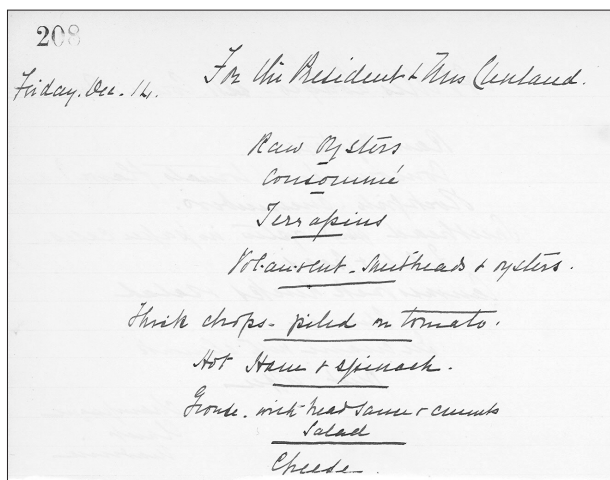 208
Friday. Dec. 14. For the President & Mrs Cleveland.
Raw Oysters
Consommé
Terrapins
Vol-au-vent - Sweetbreads & oysters.
Thick chops - piled on tomato.
Hot Ham & spinach.
Grouse. with bread sauce &
Salad
Cheese.